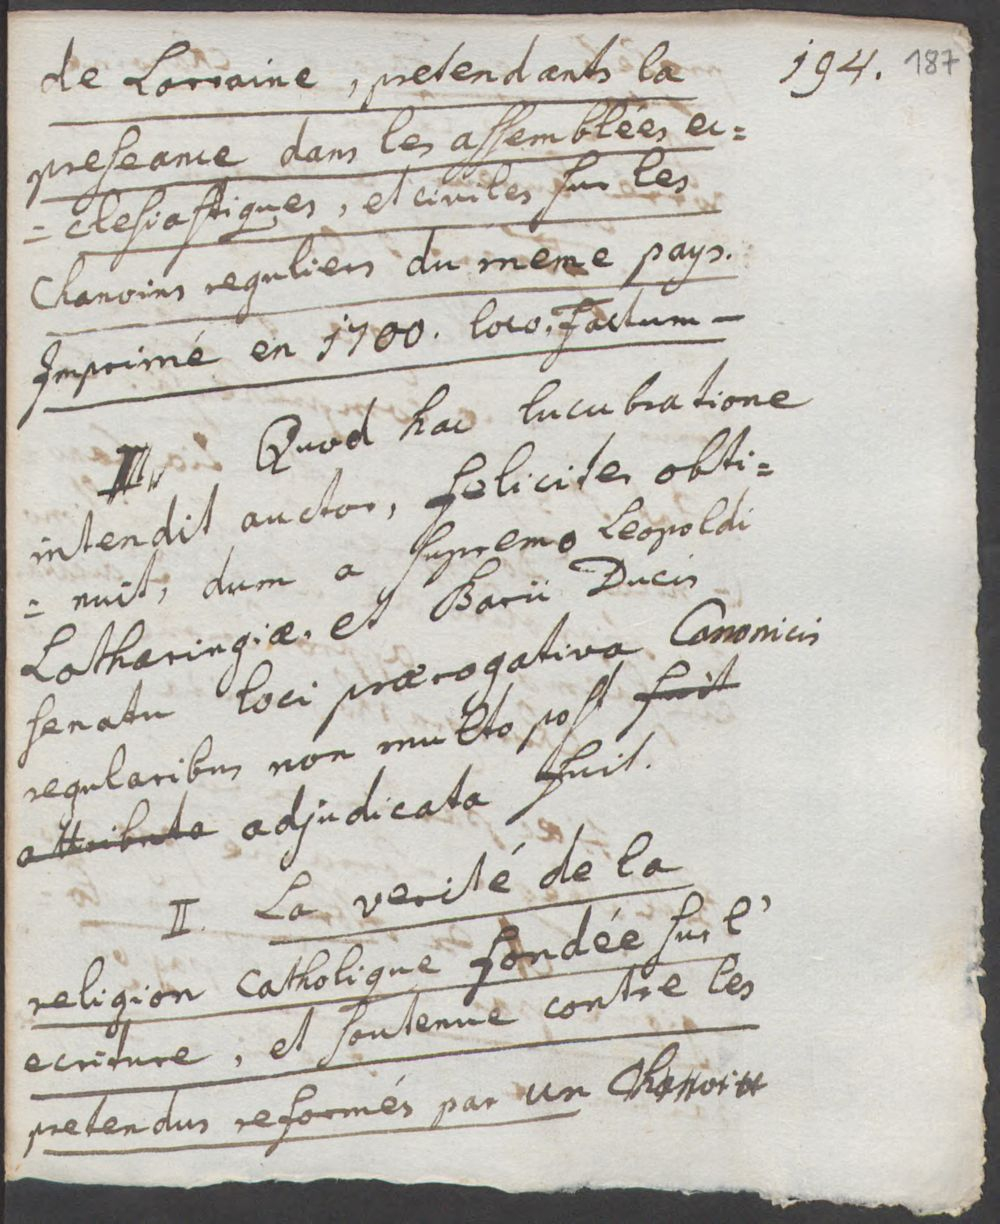 194. 187
de Lorraine, pretendants la
preseance dans les assemblées ec=
=clesiastiques, et civiles sur les
Chanoins reguliers du meme pays.
Imprimé en 1700. loco. Factum –
Quod hac lucubratione
intendit auctor, feliciter obti=
=nuit, dum a supremo Leopoldi
Lotharingiæ, et Barii Ducis
senatu loci prærogativa Canonicis
regularibus non multo post fuit
attributa adjudicata fuit.
II. La verité de la
religion Catholique fondée sur l'
ecriture, et soutenue contre les
pretendus reformés par un Chanoin